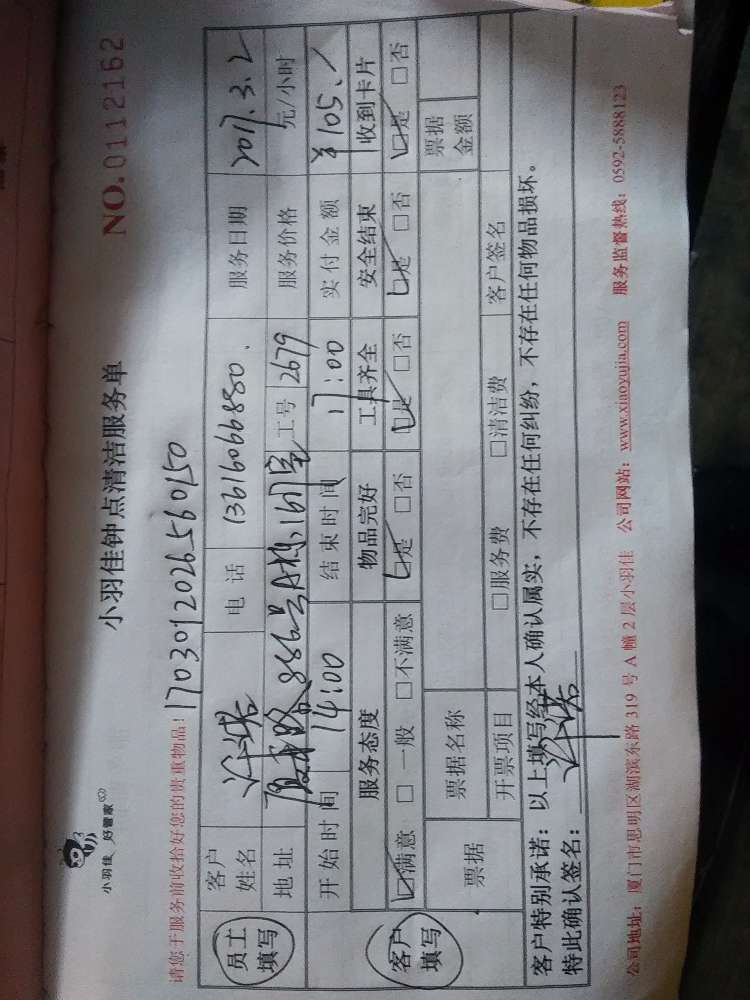 小羽佳 好管家
小羽佳钟点清洁服务单
NO.0112162
请您于服务前收拾好您的贵重物品!
1703012026560150
员工填写
客户姓名
电话 13616066880.
服务日期 2017.3.2
地址 886号A栋1617室
工号 2679
服务价格 元/小时
开始时间 14:00
结束时间 17:00
实付金额 ¥105.
客户填写
服务态度 物品完好 工具齐全 安全结束 收到卡片
☑满意 □一般 □不满意 ☑是 □否 ☑是 □否 ☑是 □否 ☑是 □否
票据
票据名称
票据金额
开票项目 □服务费 □清洁费 客户签名
客户特别承诺:以上填写经本人确认属实,不存在任何纠纷,不存在任何物品损坏。
特此确认签名:
公司地址:厦门市思明区湖滨东路319号A幢2层小羽佳 公司网站:www.xiaoyujia.com 服务监督热线:0592-5888123